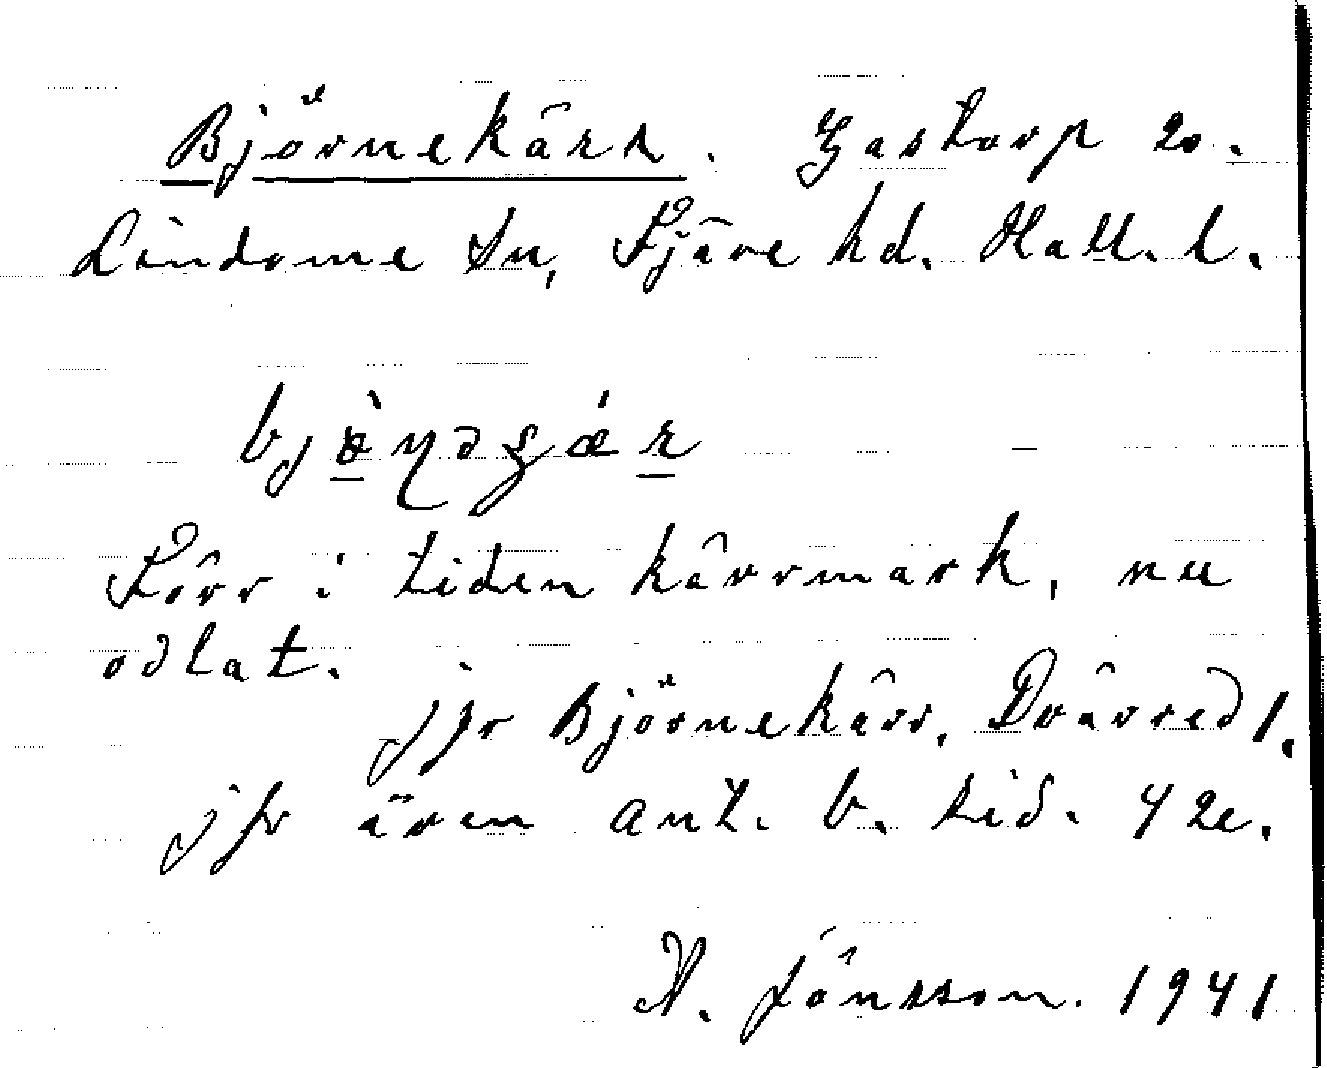 Björnekärr. Gastorp 20.
Lindome sn, Fjäre hd. Hall. l.
bjæ̀ṇəgǽr
Förr i tiden kärrmark, nu
odlat.
jfr Björnekärr, Dvärred 1.
jfr även ant. b. tid. 42e.
N. Jönsson. 1941